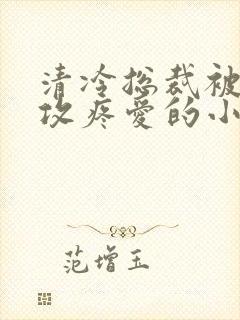 清冷总裁被
攻疼爱的小
范增玉